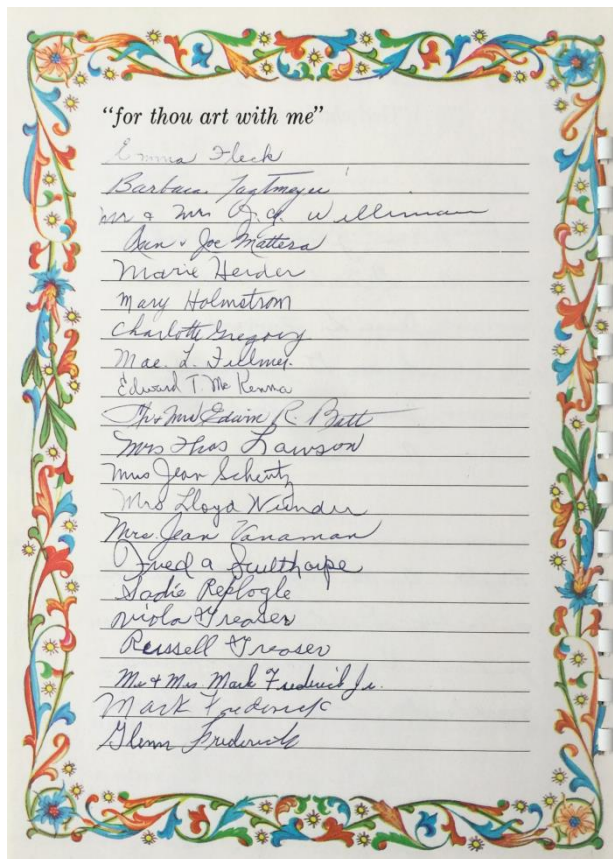 “for thou art with me”
Emma Fleck
Barbara Tagtmeyer
Mr & Mrs O. J. Williman
Ann & Joe Mattera
Marie Herder
Mary Holmstrom
Charlotte Gregory
Mae. L. Fillmer.
Edward T. McKenna
Mr & Mrs Edwin R. Batt
Mrs Thos Lawson
Mrs Jean Schintz
Mrs Lloyd
Mrs. Jean Vanaman
Fred A Sculthorpe
Sadie Replogle
Viola Greaser
Russell Greaser
Mr & Mrs. Mark Frederick Jr.
Mark Frederick
Glenn Frederick